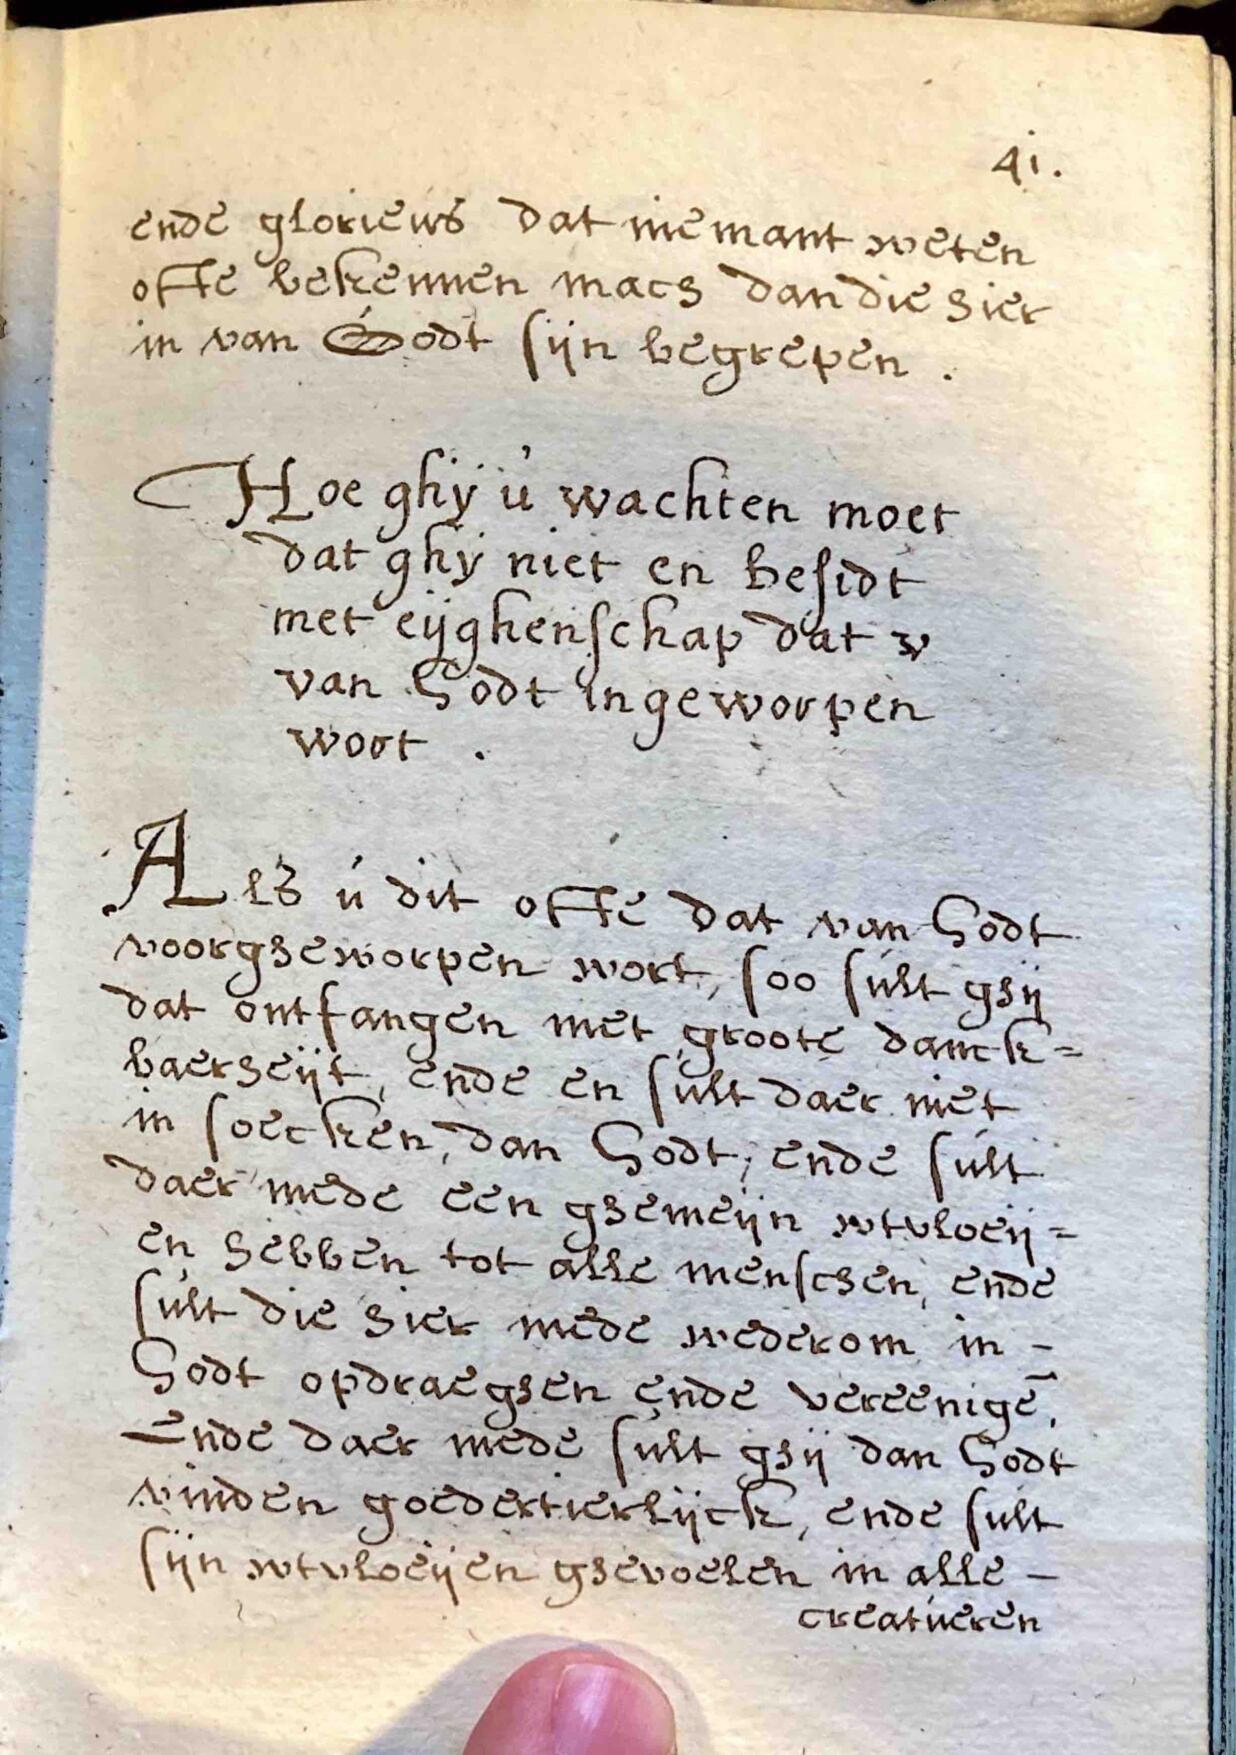 41.
ende glorieus dat niemant weten
offe bekennen mach dan die hier
in van Godt sijn begrepen .
Hoe ghÿ ú wachten moet
dat ghÿ niet en besidt
met eijghenschap dat v
van Godt ingeworpen
wort .
Als ú dit offe dat van Godt
voorgheworpen wort, soo súlt ghij
dat ontfangen met groote danck=
baerheijt, ende en súlt daer niet
in soecken, dan Godt, ende súlt
daer mede een ghemeijn wtvloeij=
en hebben tot alle menschen, ende
súlt die hier mede wederom in -
Godt opdraeghen ende vereenigē,
Ende daer mede súlt ghij dan Godt
vinden goedertierlijck, ende sult
sijn wtvloeijen ghevoelen in alle -
creatúeren